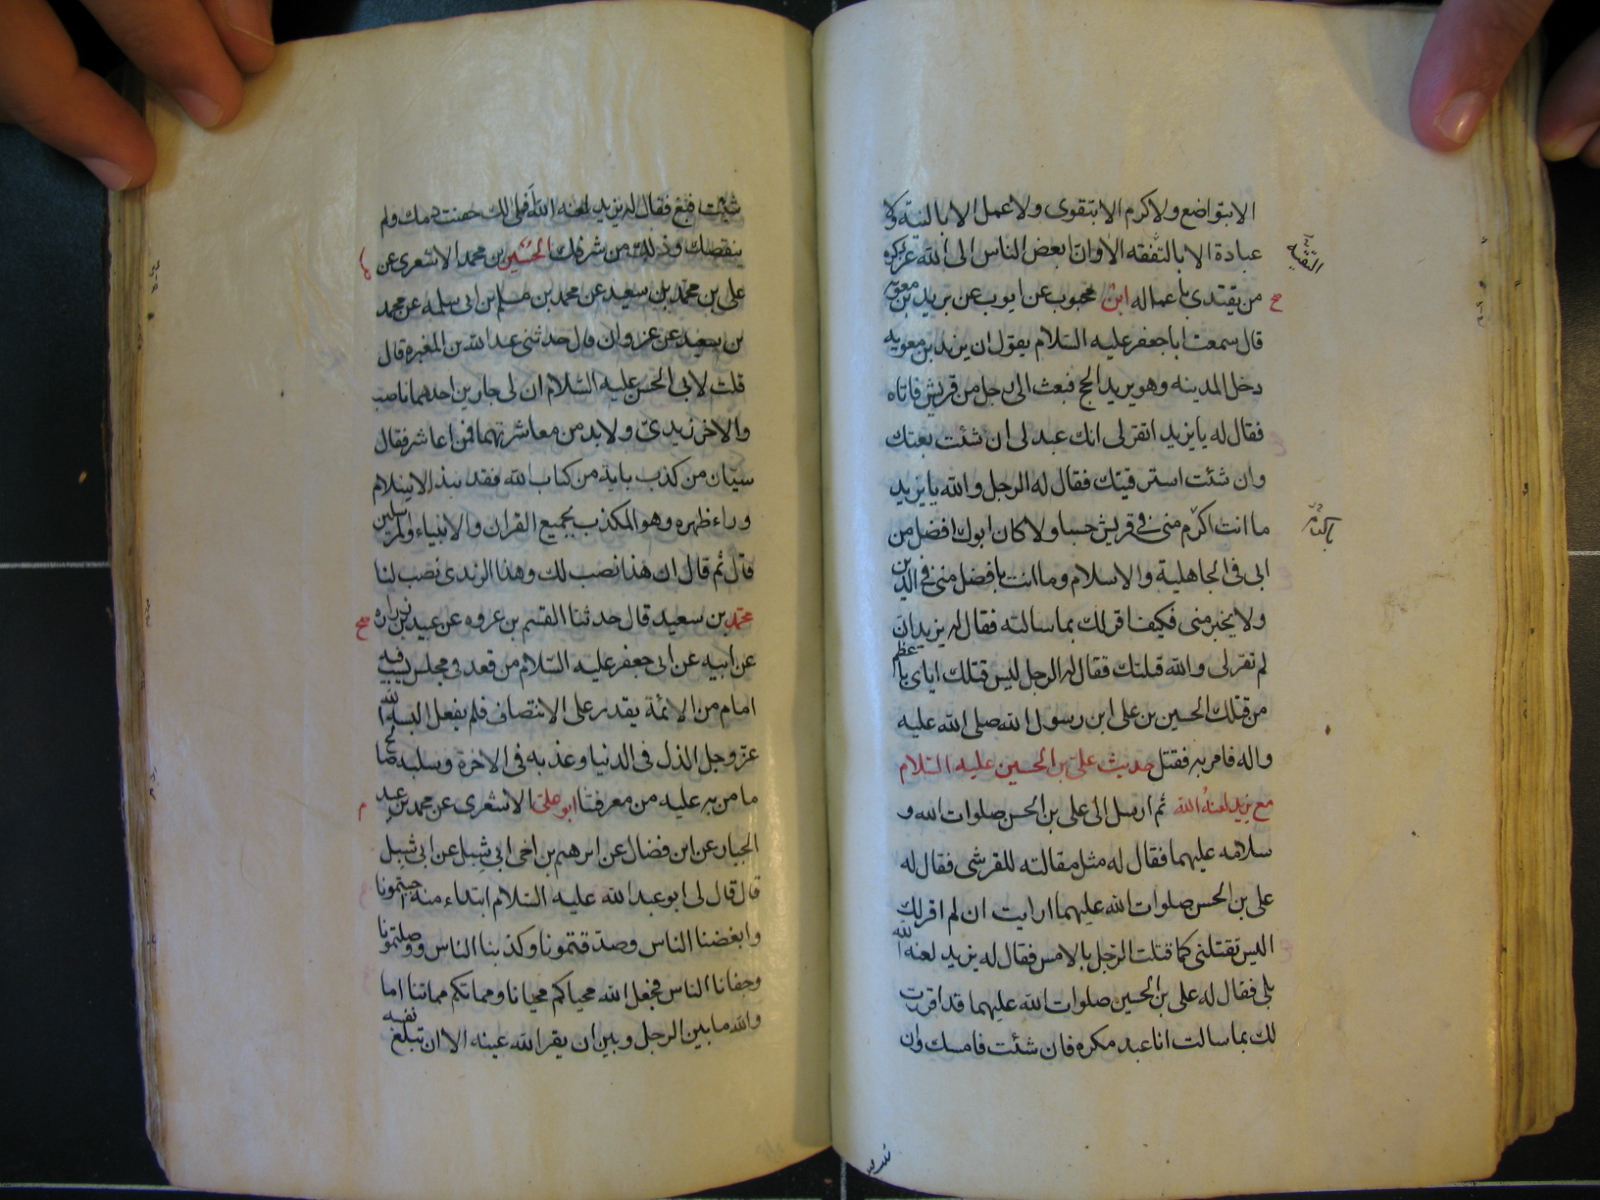 الا بتواضع ولا كرم الا بتقوى ولا عمل الا بالنية ولا
عبادة الا بالتفقه الا وان ابغض الناس الى الله عز ذكره
من يقتدى باعماله ابن محبوب عن ايوب عن بريد بن معوية
قال سمعت ابا جعفر عليه السلام يقول ان يزيد بن معوية
دخل المدينه وهو يريد الحج فبعث الى رجل من قريش فاتاه
فقال له يا يزيد اتقر لى انك عبد لى ان شئت بعتك
وان شئت استرقيتك فقال له الرجل والله يا يزيد
ما انت اكرم منى فى قريش حسبا ولا كان ابوك افضل من
ابى فى الجاهلية والاسلام وما انت بافضل منى فى الدين
ولا بخير منى فكيف اقر لك بما سالت فقال له يزيد ان
لم تقر لى والله قتلتك فقال له الرجل ليس قتلك اياى باعظم
من قتلك الحسين بن على ابن رسول الله صلى الله عليه
واله فامر به فقتل حديث على بن الحسين عليه السلام
مع يزيد لعنه الله ثم ارسل الى على بن الحسين صلوات الله و
سلامه عليهما فقال له مثل مقالته للقرشى فقال له
على بن الحسين صلوات الله عليهما ارايت ان لم اقر لك
اليس تقتلنى كما قتلت الرجل بالامس فقال له يزيد لعنه الله
بلى فقال له على بن الحسين صلوات الله عليهما قد اقررت
لك بما سالت انا عبد مكره فان شئت فامسك وان
شئت فبع فقال له يزيد لعنه الله اولى لك حقنت دمك ولم
ينقصك وذلك من شرفك الحسين بن محمد الاشعرى عن
على بن محمد بن سعيد عن محمد بن مسلم بن ابى سلمه عن محمد
بن سعيد عن غزوان قال حدثنى عبد الله بن المغيره قال
قلت لابى الحسن عليه السلام ان لى جارين احدهما ناصب
والاخر زيدى ولا بد من معاشرتهما فمن اعاشر فقال
سيان من كذب باية من كتاب الله فقد نبذ الاسلام
وراء ظهره وهو المكذب بجميع القران والانبياء والمرسلين
قال ثم قال ان هذا نصب لك وهذا الزيدى نصب لنا
محمد بن سعيد قال حدثنا القسم بن عروه عن عبيد بن زراره
عن ابيه عن ابى جعفر عليه السلام من قعد فى مجلس يسب فيه
امام من الائمة يقدر على الانتصاف فلم يفعل البسه الله
عز وجل الذل فى الدنيا وعذبه فى الاخرة وسلبه صالح
ما من به عليه من معرفتنا ابو على الاشعرى عن محمد بن عبد
الجبار عن ابن فضال عن ابرهيم بن اخى ابى شبل عن ابى شبل
قال قال لى ابو عبد الله عليه السلام ابتداء منه احببتمونا
وابغضنا الناس وصدقتمونا وكذبنا الناس ووصلتمونا
وجفانا الناس فجعل الله محياكم محيانا ومماتكم مماتنا اما
والله ما بين الرجل وبين ان يقر الله عينه الا ان تبلغ نفسه